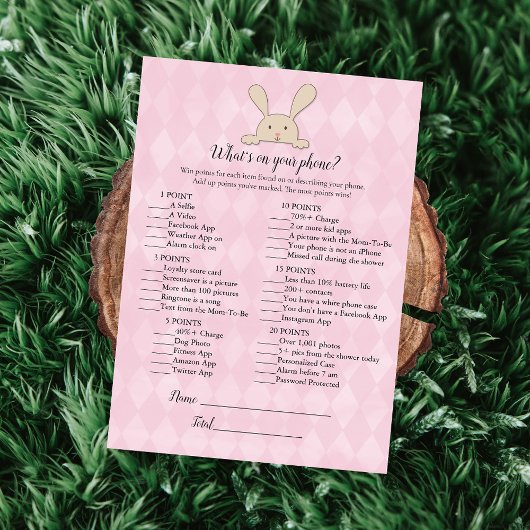 What's on your phone?
Win points for each item found on or describing your phone.
Add up points you've marked. The most points wins!
1 POINT
_____A Selfie
_____A Video
_____Facebook App
_____Weather App on
_____Alarm clock on
3 POINTS
_____Loyalty score card
_____Screensaver is a picture
_____More than 100 pictures
_____Ringtone is a song
_____Text from the Mom-To-Be
5 POINTS
_____40%+ Charge
_____Dog Photo
_____Fitness App
_____Amazon App
_____Twitter App
10 POINTS
_____70%+ Charge
_____2 or more kid apps
_____A picture with the Mom-To-Be
_____Your phone is not an iPhone
_____Missed call during the shower
15 POINTS
_____Less than 10% battery life
_____200+ contacts
_____You have a white phone case
_____You don't have a Facebook App
_____Instagram App
20 POINTS
_____Over 1,001 photos
_____5+ pics from the shower today
_____Personalized Case
_____Alarm before 7 am
_____Password Protected
Name ____________________
Total____________________